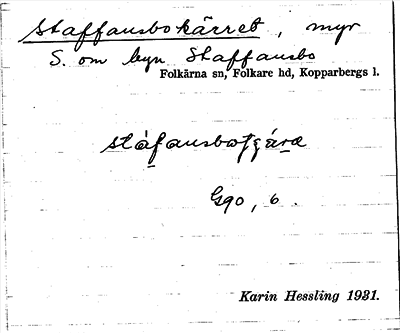 Staffansbokärret, myr
S. om byn Staffansbo
Folkärna sn, Folkare hd, Kopparbergs l.
Ggo, 6.
Karin Hessling 1931.